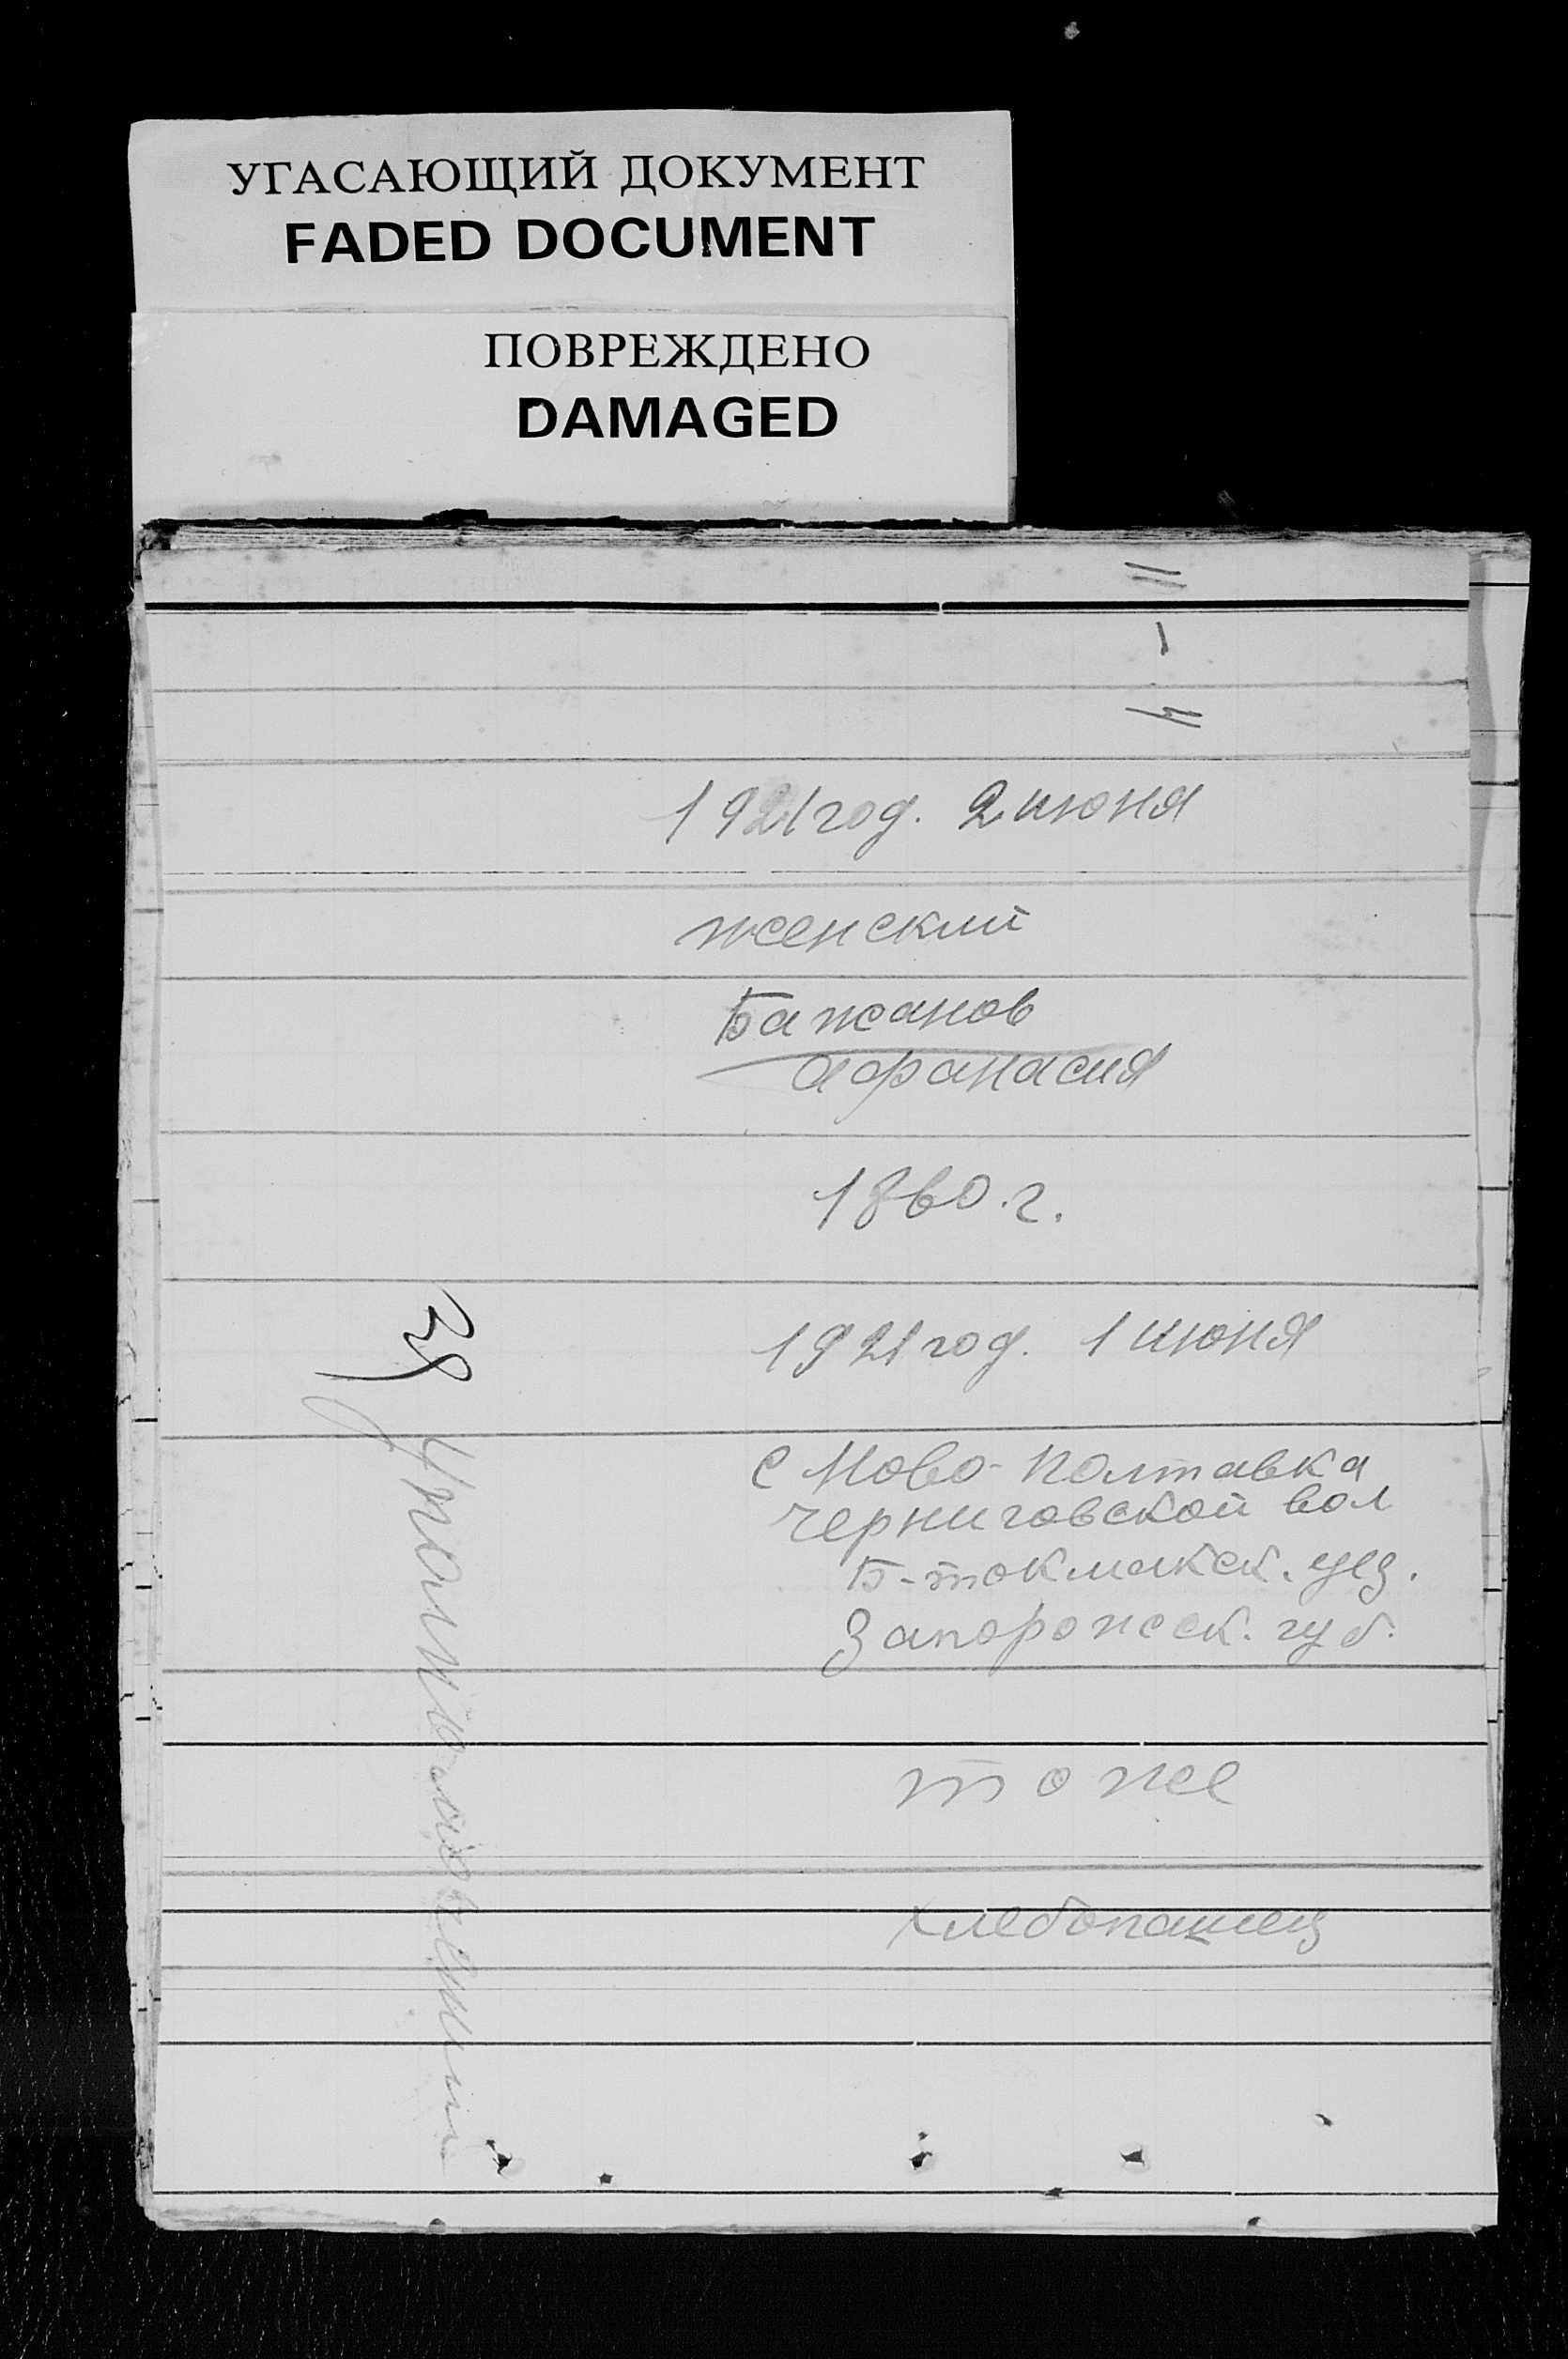 УГАСАЮЩИЙ ДОКУМЕНТ
FADED DOCUMENT
ПОВРЕЖДЕНО
DAMAGED
1921 год. 2 июня
женский
Бажанов
Афанасия
1860.г.
1921 год. 1 июня
с Ново-Полтавка
Черниговской вол
Б-токмакск. уез.
Запорожск. губ.
тоже
хлебопашец